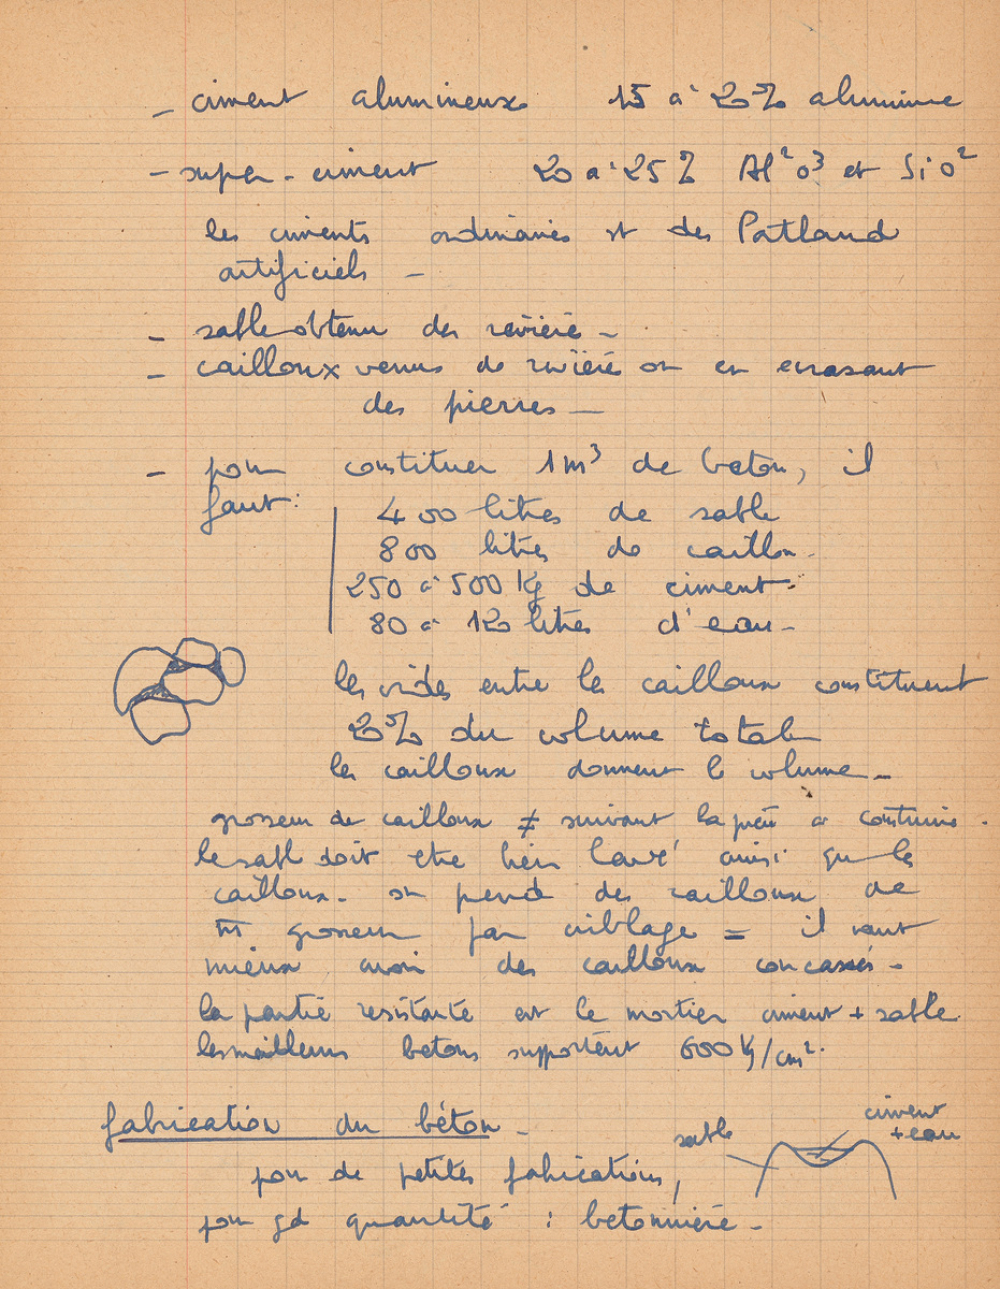 - ciment alumineux 15 à 20% alumine
- super-ciment 20 à 25% Al²O³ et SiO²
les ciments ordinaires st des Portland
artificiels -
- sable obtenu des rivière -
- cailloux venus de rivière ou en écrasant
des pierres -
- pour constituer 1m³ de beton, il
faut:
400 litres de sable
800 litres de caillou -
250 à 500 Kg de ciment -
80 à 120 litres d'eau -
les vides entre les cailloux constituent
20% du volume total
les cailloux donnent le volume -
grosseur de cailloux ≠ suivant la pièce à construire -
le sable doit etre bien lavé ainsi que les
cailloux - on prend des cailloux de
m̄ grosseur par criblage = il vaut
mieux avoir des cailloux concassés -
la partie resistante est le mortier ciment + sable
les meilleurs betons supportent 600 Kg/cm².
fabrication du béton -
sable
ciment
+ eau
pour de petites fabrications,
pour gd quantité : betonnière -